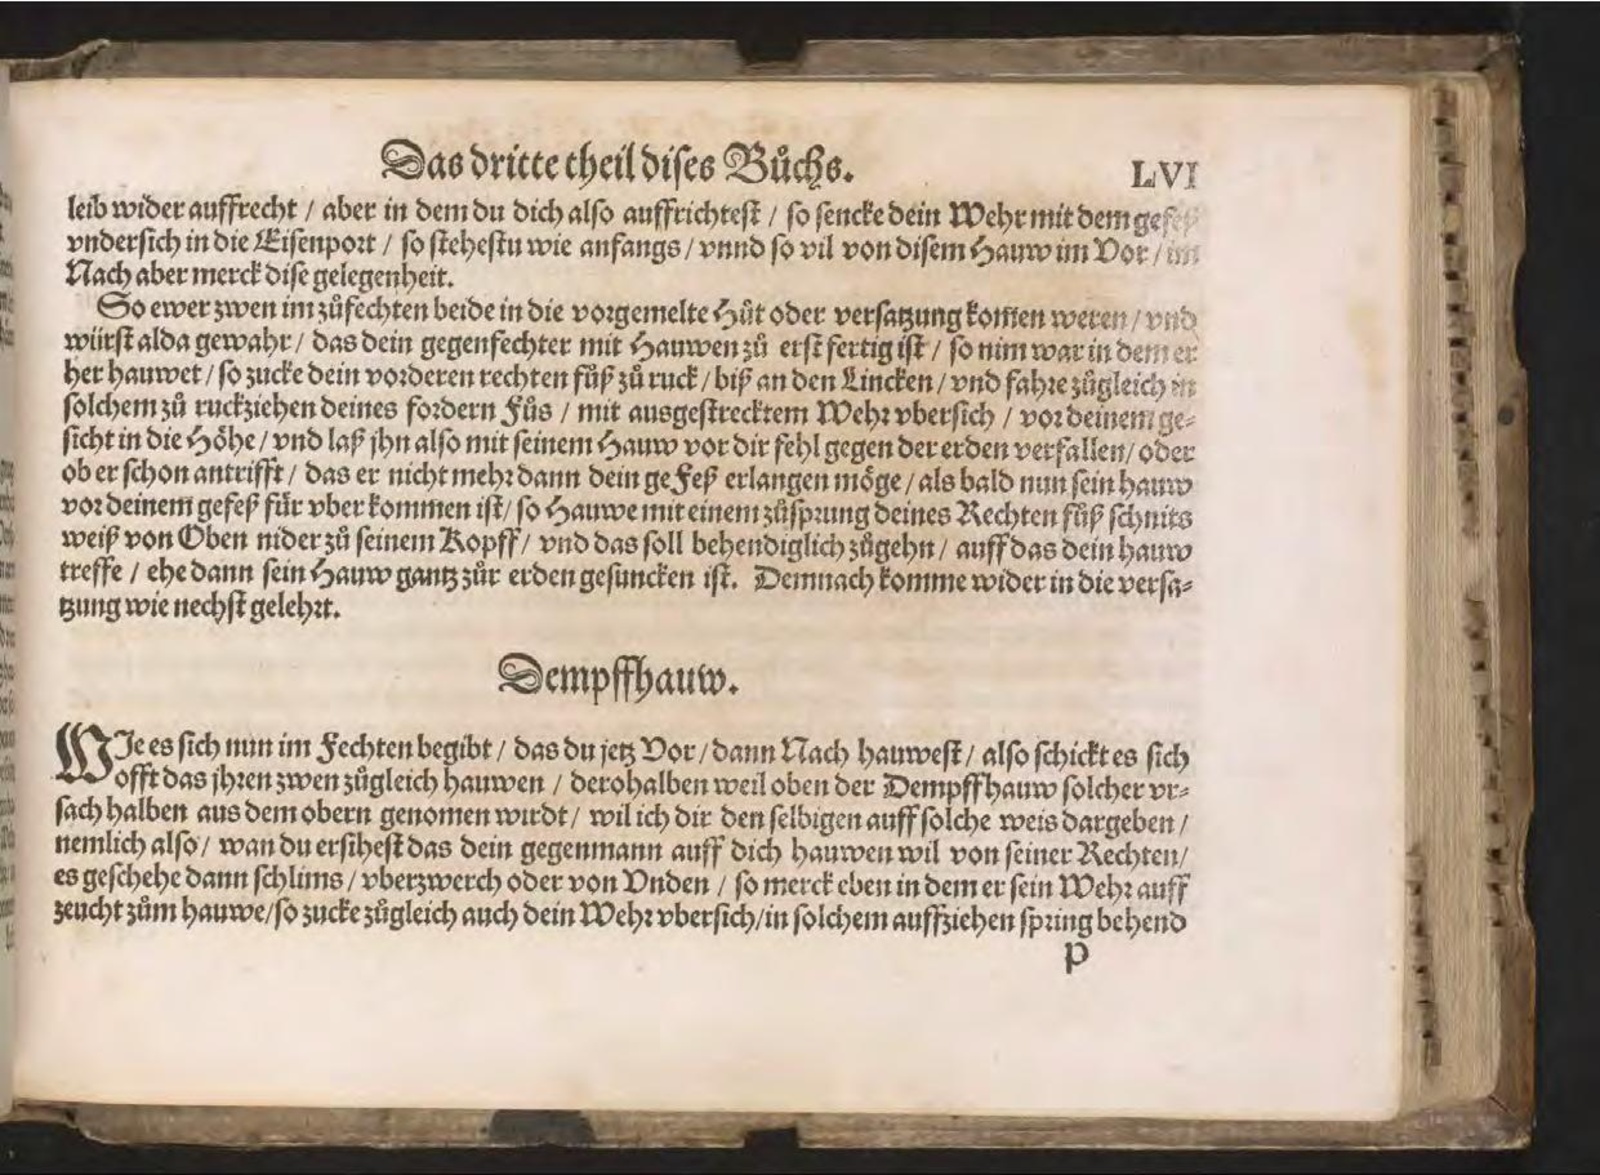 Das dritte theil dises Bůchs. LVI
leib wider auffrecht / aber in dem du dich also auffrichtest / so sencke dein Wehr mit dem gefeß
vndersich in die Eisenport / so stehestu wie anfangs / vnnd so vil von disem Hauw im Vor / im
Nach aber merck dise gelegenheit.
So ewer zwen im zůfechten beide in die vorgemelte Hůt oder versatzung kom̃en weren / vnd
würst alda gewahr / das dein gegenfechter mit Hauwen zů erst fertig ist / so nim war in dem er
her hauwet / so zucke dein vorderen rechten fůß zů ruck / biß an den Lincken / vnd fahre zůgleich in
solchem zů ruckziehen deines fordern Fůs / mit ausgestrecktem Wehr vbersich / vor deinem ge⸗
sicht in die Höhe / vnd laß jhn also mit seinem Hauw vor dir fehl gegen der erden verfallen / oder
ob er schon antrifft / das er nicht mehr dann dein geFeß erlangen möge / als bald nun sein hauw
vor deinem gefeß für vber kommen ist / so Hauwe mit einem zůsprung deines Rechten fůß schnits
weiß von Oben nider zů seinem Kopff / vnd das soll behendiglich zůgehn / auff das dein hauw
treffe / ehe dann sein Hauw gantz zůr erden gesuncken ist. Demnach komme wider in die versa⸗
tzung wie nechst gelehrt.
Dempffhauw.
WIe es sich nun im Fechten begibt / das du jetz Vor / dann Nach hauwest / also schickt es sich
offt das jhren zwen zůgleich hauwen / derohalben weil oben der Dempffhauw solcher vr⸗
sach halben aus dem obern genomen wirdt / wil ich dir den selbigen auff solche weis dargeben /
nemlich also / wan du ersihest das dein gegenmann auff dich hauwen wil von seiner Rechten /
es geschehe dann schlims / vberzwerch oder von Vnden / so merck eben in dem er sein Wehr auff
zeucht zům hauwe / so zucke zůgleich auch dein Wehr vbersich / in solchem auffziehen spring behend
P